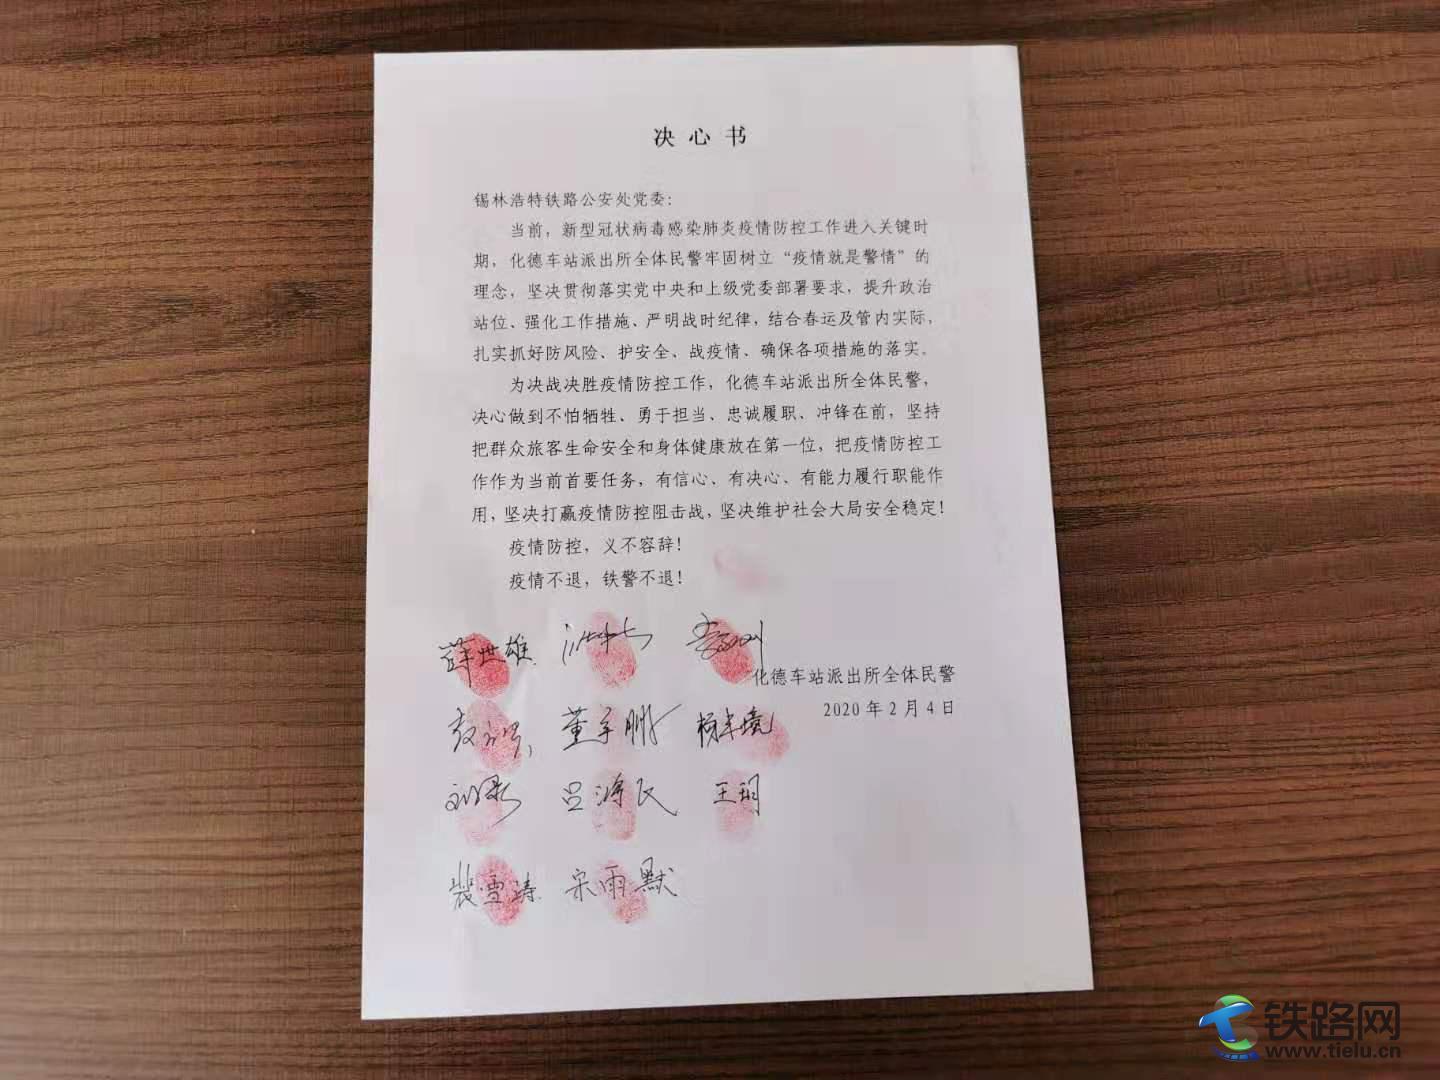 决心书
锡林浩特铁路公安处党委：
当前，新型冠状病毒感染肺炎疫情防控工作进入关键时
期，化德车站派出所全体民警牢固树立“疫情就是警情”的
理念，坚决贯彻落实党中央和上级党委部署要求，提升政治
站位、强化工作措施、严明战时纪律，结合春运及管内实际，
扎实抓好防风险、护安全、战疫情、确保各项措施的落实。
为决战决胜疫情防控工作，化德车站派出所全体民警，
决心做到不怕牺牲、勇于担当、忠诚履职、冲锋在前，坚持
把群众旅客生命安全和身体健康放在第一位，把疫情防控工
作作为当前首要任务，有信心、有决心、有能力履行职能作
用，坚决打赢疫情防控阻击战，坚决维护社会大局安全稳定！
疫情防控，义不容辞！
疫情不退，铁警不退！
薛世雄
化德车站派出所全体民警
2020年2月4日
董宇鹏
王玥
裴雪涛 宋雨默
铁路网
www.tielu.cn